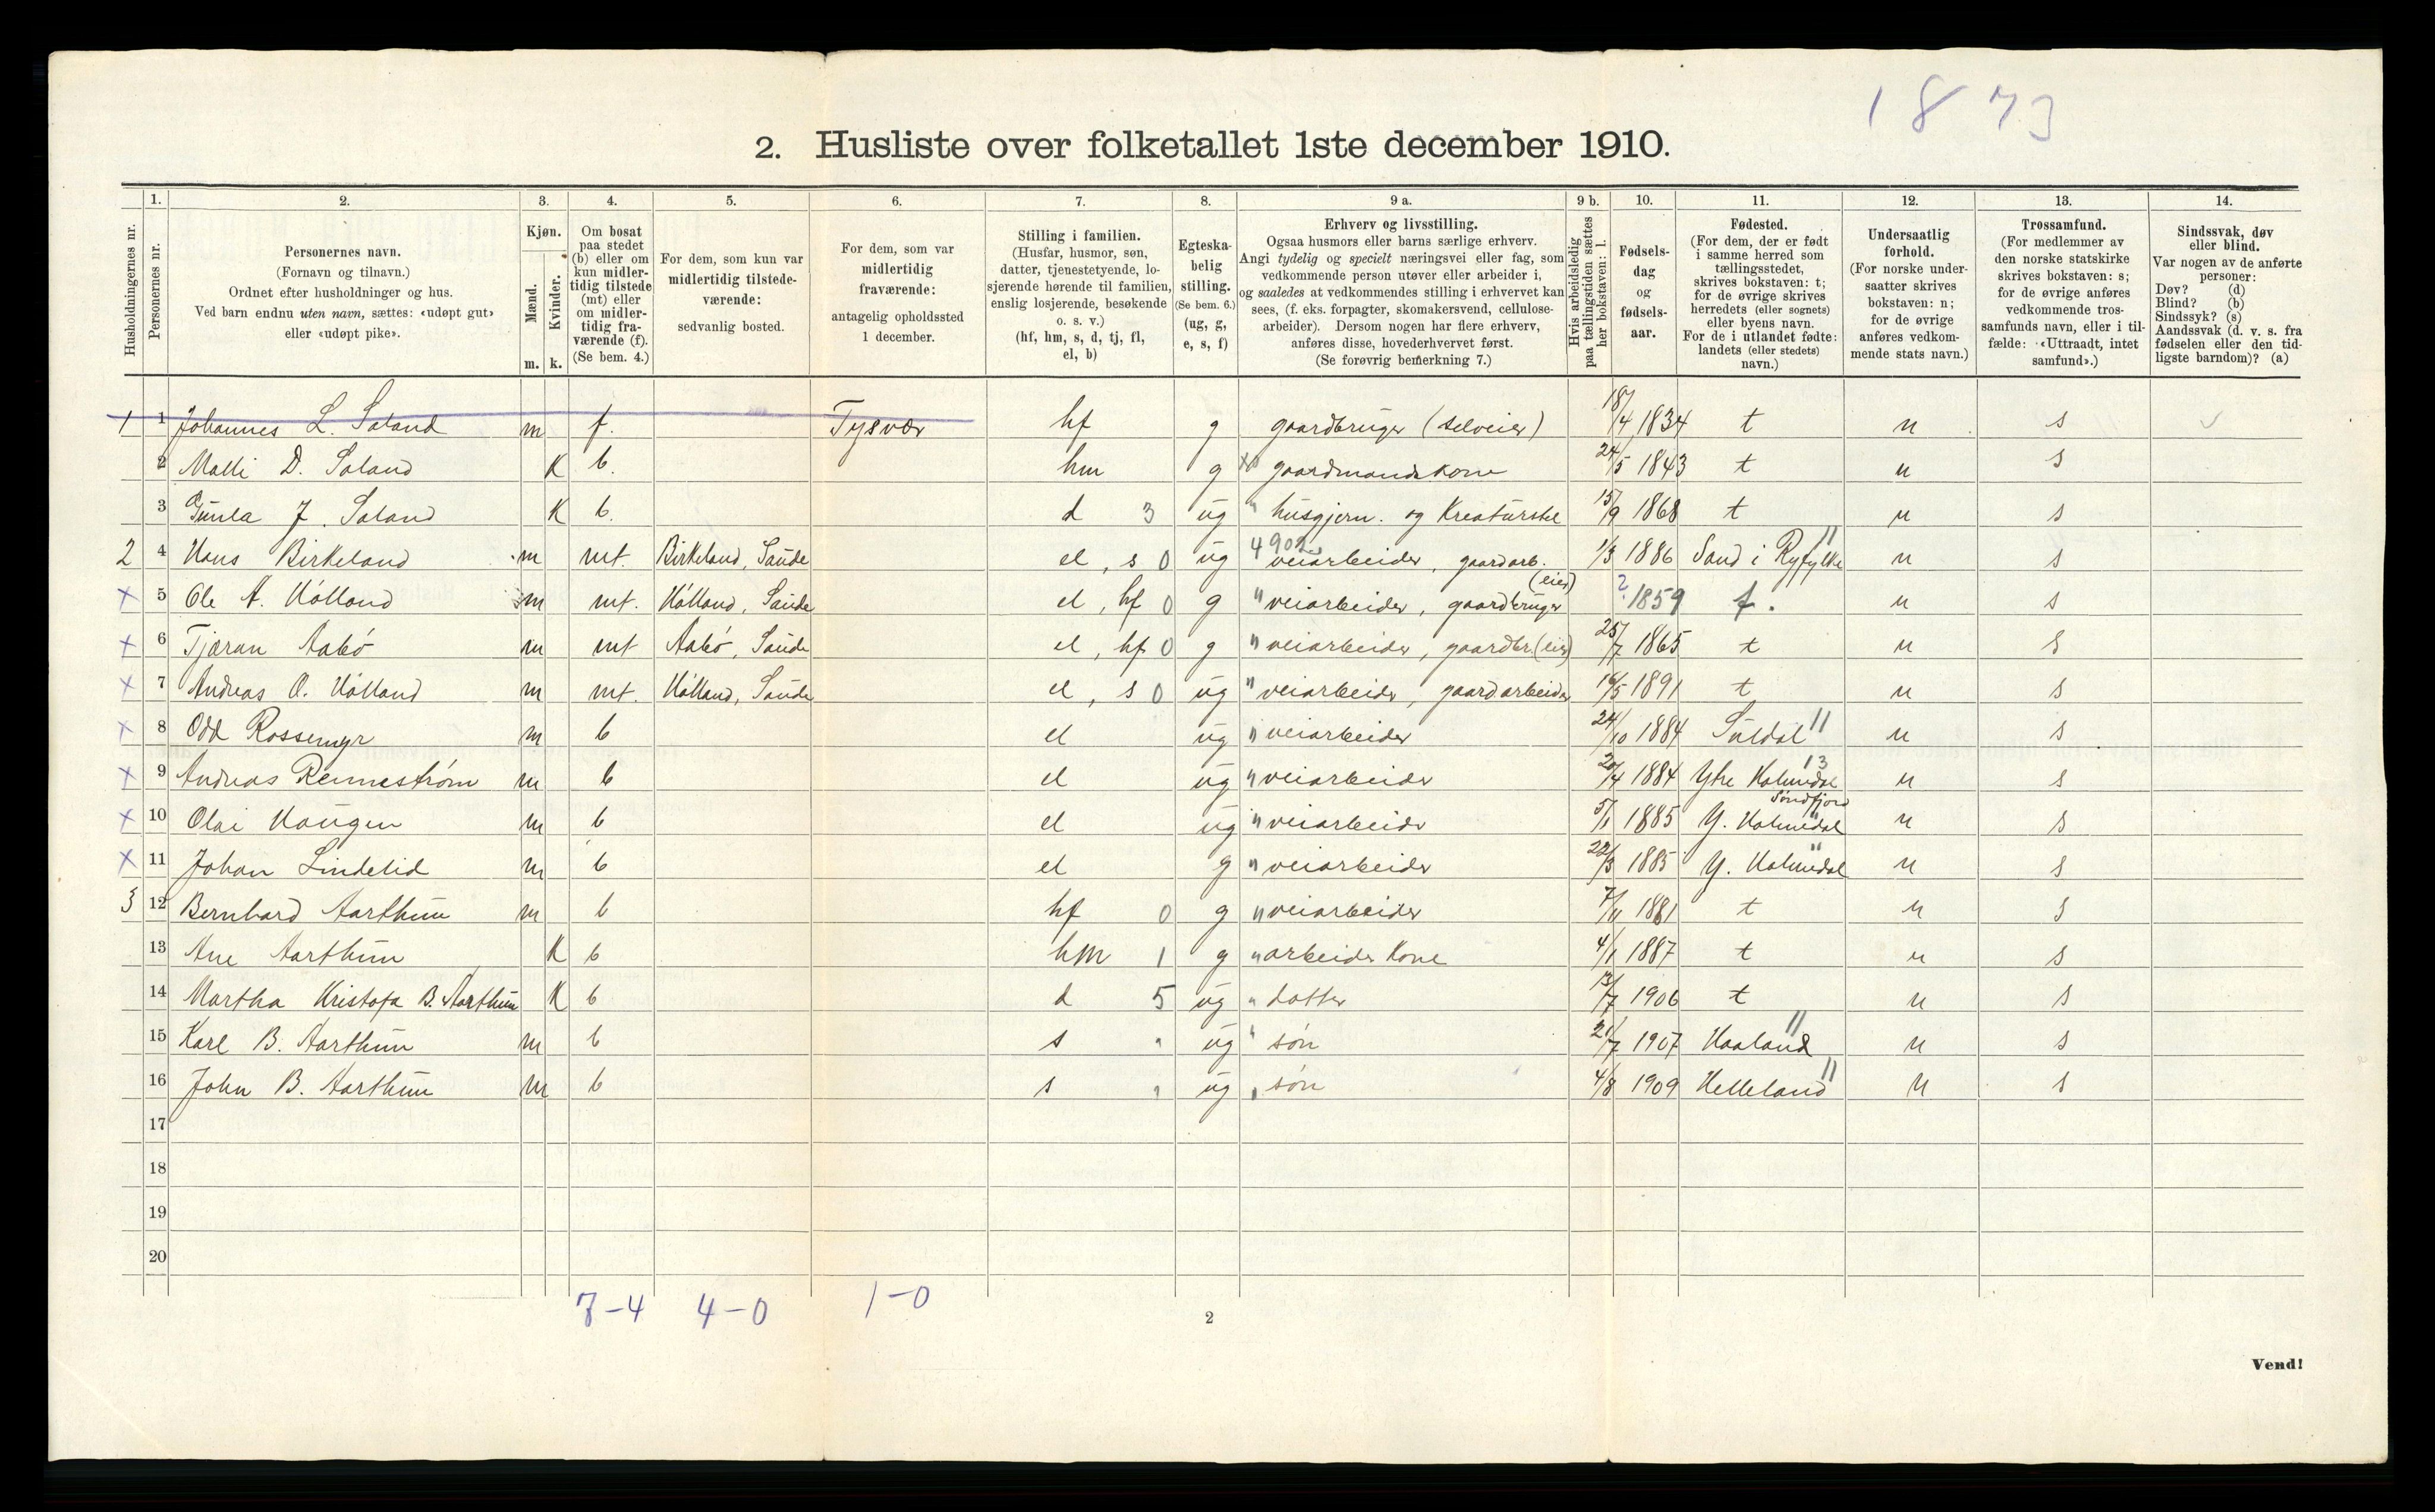 1873
2. Husliste over folketallet 1ste december 1910.
Husholdningernes nr.
1. Personernes nr.
2. Personernes navn. (Fornavn og tilnavn.) Ordnet efter husholdninger og hus. Ved barn endnu uten navn, sættes: «udøpt gut» eller «udøpt pike».
3. Kjøn. Mænd. m. Kvinder. k.
4. Om bosat paa stedet (b) eller om kun midlertidig tilstede (mt) eller om midlertidig fraværende (f). (Se bem. 4.)
5. For dem, som kun var midlertidig tilstedeværende: sedvanlig bosted.
6. For dem, som var midlertidig fraværende: antagelig opholdssted 1 december.
7. Stilling i familien. (Husfar, husmor, søn, datter, tjenestetyende, losjerende hørende til familien, enslig losjerende, besøkende o. s. v.) (hf, hm, s, d, tj, fl, el, b)
8. Egteskabelig stilling. (Se bem. 6.) (ug, g, e, s, f)
9 a. Erhverv og livsstilling. Ogsaa husmors eller barns særlige erhverv. Angi tydelig og specielt næringsvei eller fag, som vedkommende person utøver eller arbeider i, og saaledes at vedkommendes stilling i erhvervet kan sees, (f. eks. forpagter, skomakersvend, cellulosearbeider). Dersom nogen har flere erhverv, anføres disse, hovederhvervet først. (Se forøvrig bemerkning 7.)
9 b. Hvis arbeidsledig paa tællingstiden sættes her bokstaven: l.
10. Fødselsdag og fødselsaar.
11. Fødested. (For dem, der er født i samme herred som tællingsstedet, skrives bokstaven: t; for de øvrige skrives herredets (eller sognets) eller byens navn. For de i utlandet fødte: landets (eller stedets) navn.)
12. Undersaatlig forhold. (For norske undersaatter skrives bokstaven: n; for de øvrige anføres vedkommende stats navn.)
13. Trossamfund. (For medlemmer av den norske statskirke skrives bokstaven: s; for de øvrige anføres vedkommende trossamfunds navn, eller i tilfælde: «Uttraadt, intet samfund».)
14. Sindssvak, døv eller blind. Var nogen av de anførte personer: Døv? (d) Blind? (b) Sindssyk? (s) Aandssvak (d. v. s. fra fødselen eller den tidligste barndom)? (a)
1 1 Johannes L. Saland m f. Tysvær hf g gaardbruger (selveier) 18/4 1834 t n s
2 Malli D. Saland K b. hm g gaardmandskone 24/5 1843 t n s
3 Gunla J. Saland K b. d 3 ug " husgjern. og Kreaturstel 15/9 1868 t n s
2 4 Hans Birkeland m mt. Birkeland, Saude el, s 0 ug veiarbeider, gaardarb. 1/3 1886 Sand i Ryfylke n s
x 5 Ole A. Hålland m mt. Hålland, Saude el, hf 0 g " veiarbeider, gaardbruger (eier) ? 1859 f. n s
x 6 Tjøran Aabø m mt Aabø, Saude el, hf 0 g " veiarbeider, gaardbr. (eier) 25/7 1865 t n s
x 7 Andreas O. Hålland m mt. Hålland, Saude el, s 0 ug " veiarbeider, gaardarbeider 16/5 1891 t n s
x 8 Odd Rossemyr m b el ug " veiarbeider 24/10 1884 Suldal n s
x 9 Andreas Rennestrøm m b el ug " veiarbeider 20/4 1884 Ytre Holmedal Søndfjord n s
x 10 Olai Haugen m b el ug " veiarbeider 5/1 1885 Y. Holmedal n s
x 11 Johan Lindelid m b el g " veiarbeider 22/3 1885 Y. Holmedal n s
3 12 Bernhard Aarthun m b hf 0 g " veiarbeider 7/11 1881 t n s
13 Ane Aarthun K b hm 1 g " arbeider Kone 4/1 1887 t n s
14 Martha Kristofa B. Aarthun K b d 5 ug " datter 13/7 1906 t n s
15 Karl B. Aarthun m b s " ug " søn 21/7 1907 Haaland n s
16 John B. Aarthun m b s " ug " søn 4/8 1909 Helleland n s
17
18
19
20
7-4 4-0 1-0
2
Vend!